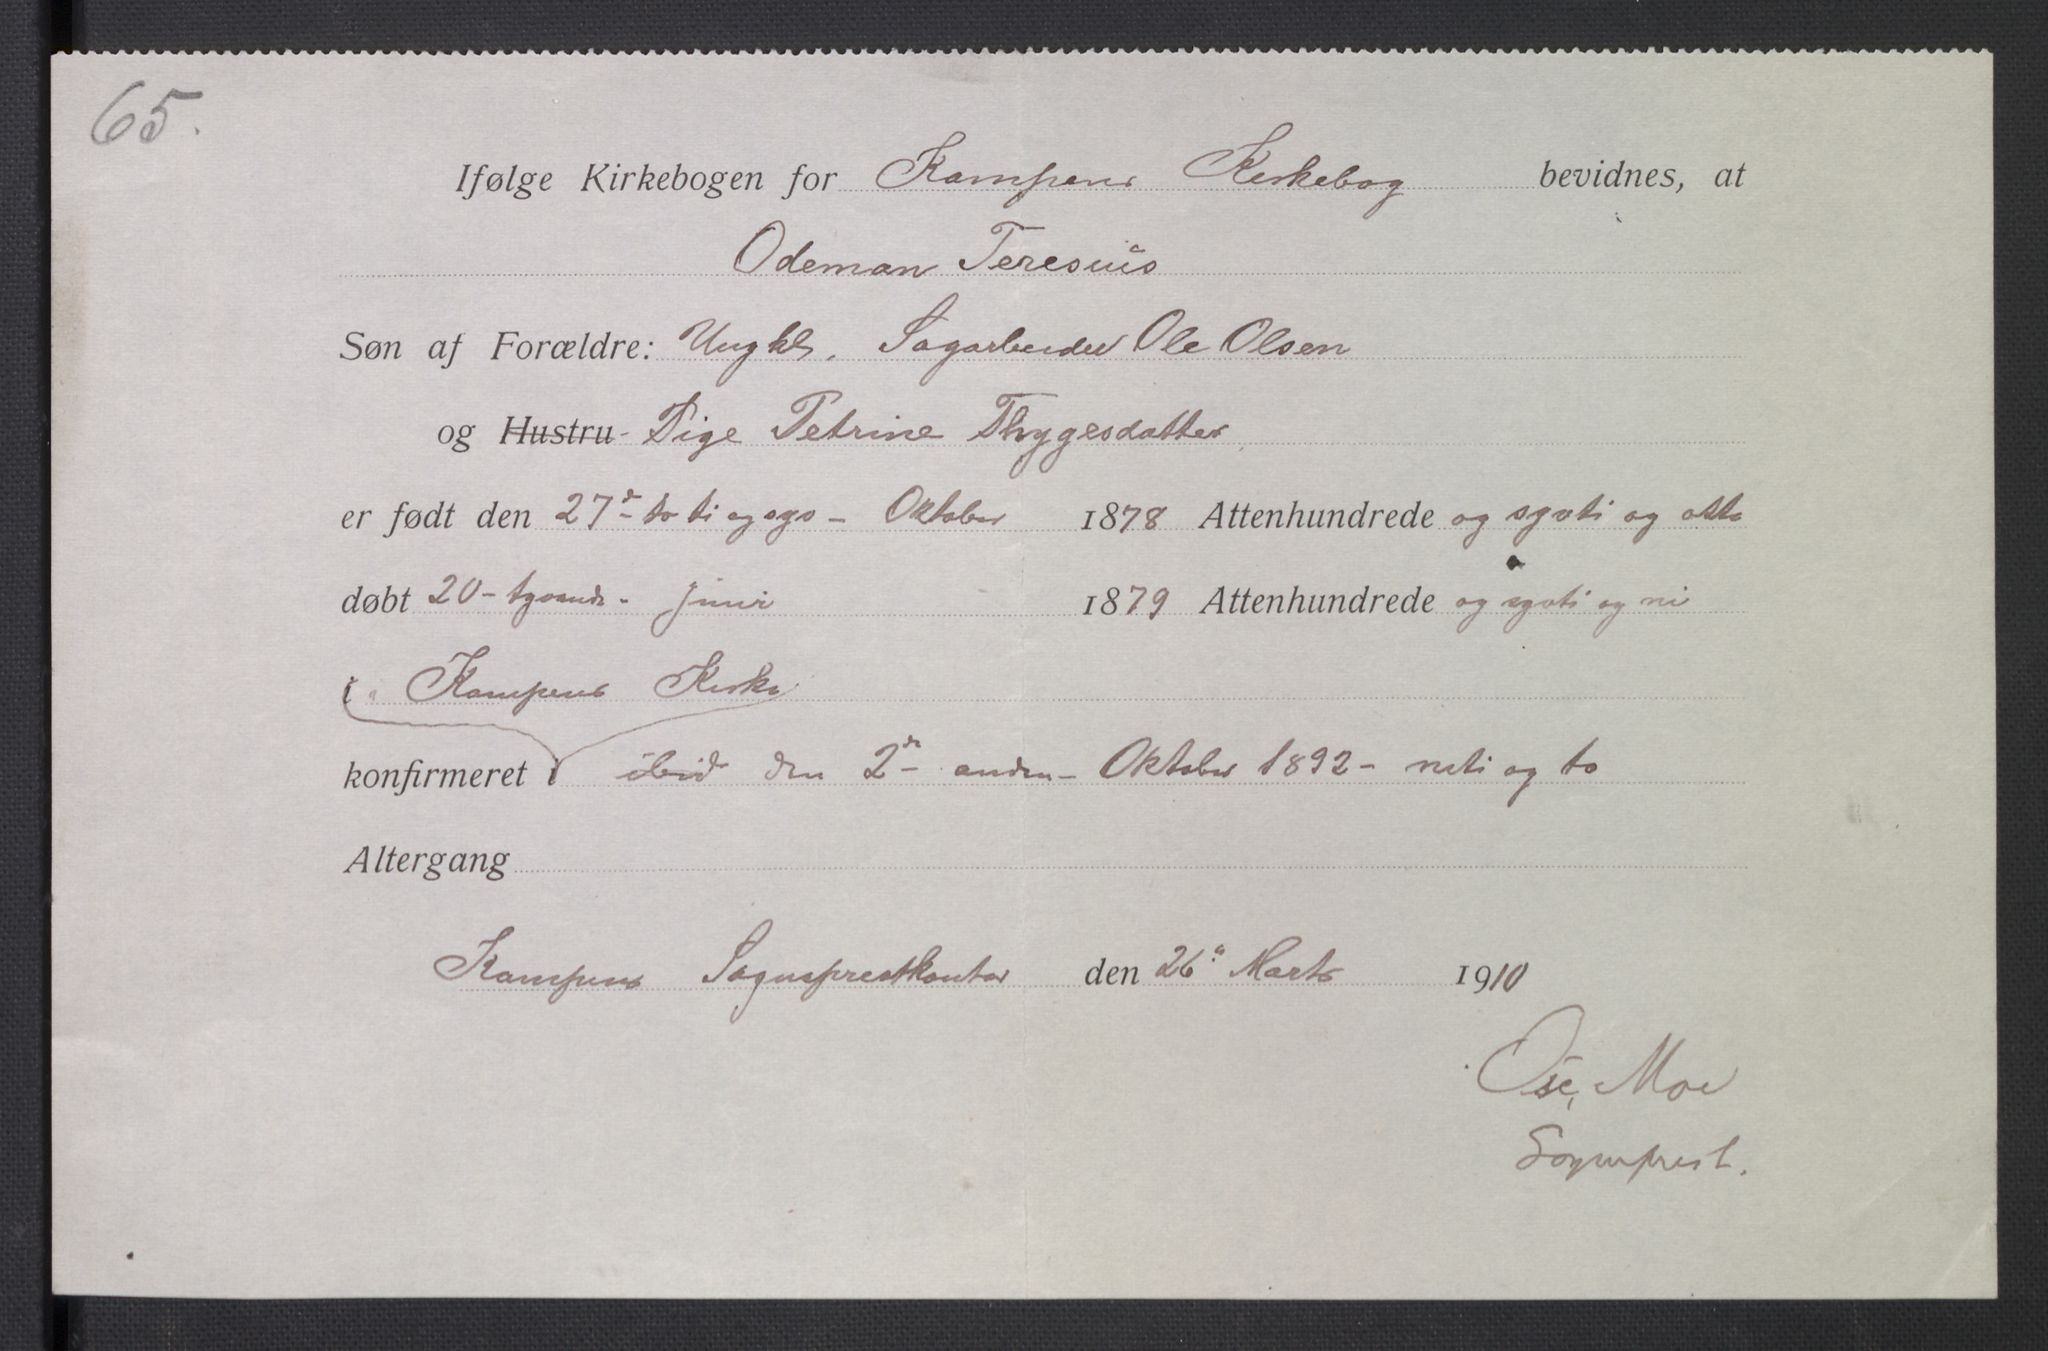 65.
Ifølge Kirkebogen for Kampens Kirkebog bevidnes, at
Odeman Teresius
Søn af Forældre: Ungkl. Sagarbeider Ole Olsen
og Hustru Pige Petrine Thygesdatter
er født den 27de to ti og syv - Oktober 1878 Attenhundrede og syvti og otte
døbt 20 - tyvende - juni 1879 Attenhundrede og syvti og ni
i Kampens Kirke
konfirmeret i ibid den 2den - anden - Oktober 1892 - niti og to
Altergang
Kampens Sogneprestkontor den 26. Marts 1910
Moe
Sogneprest.